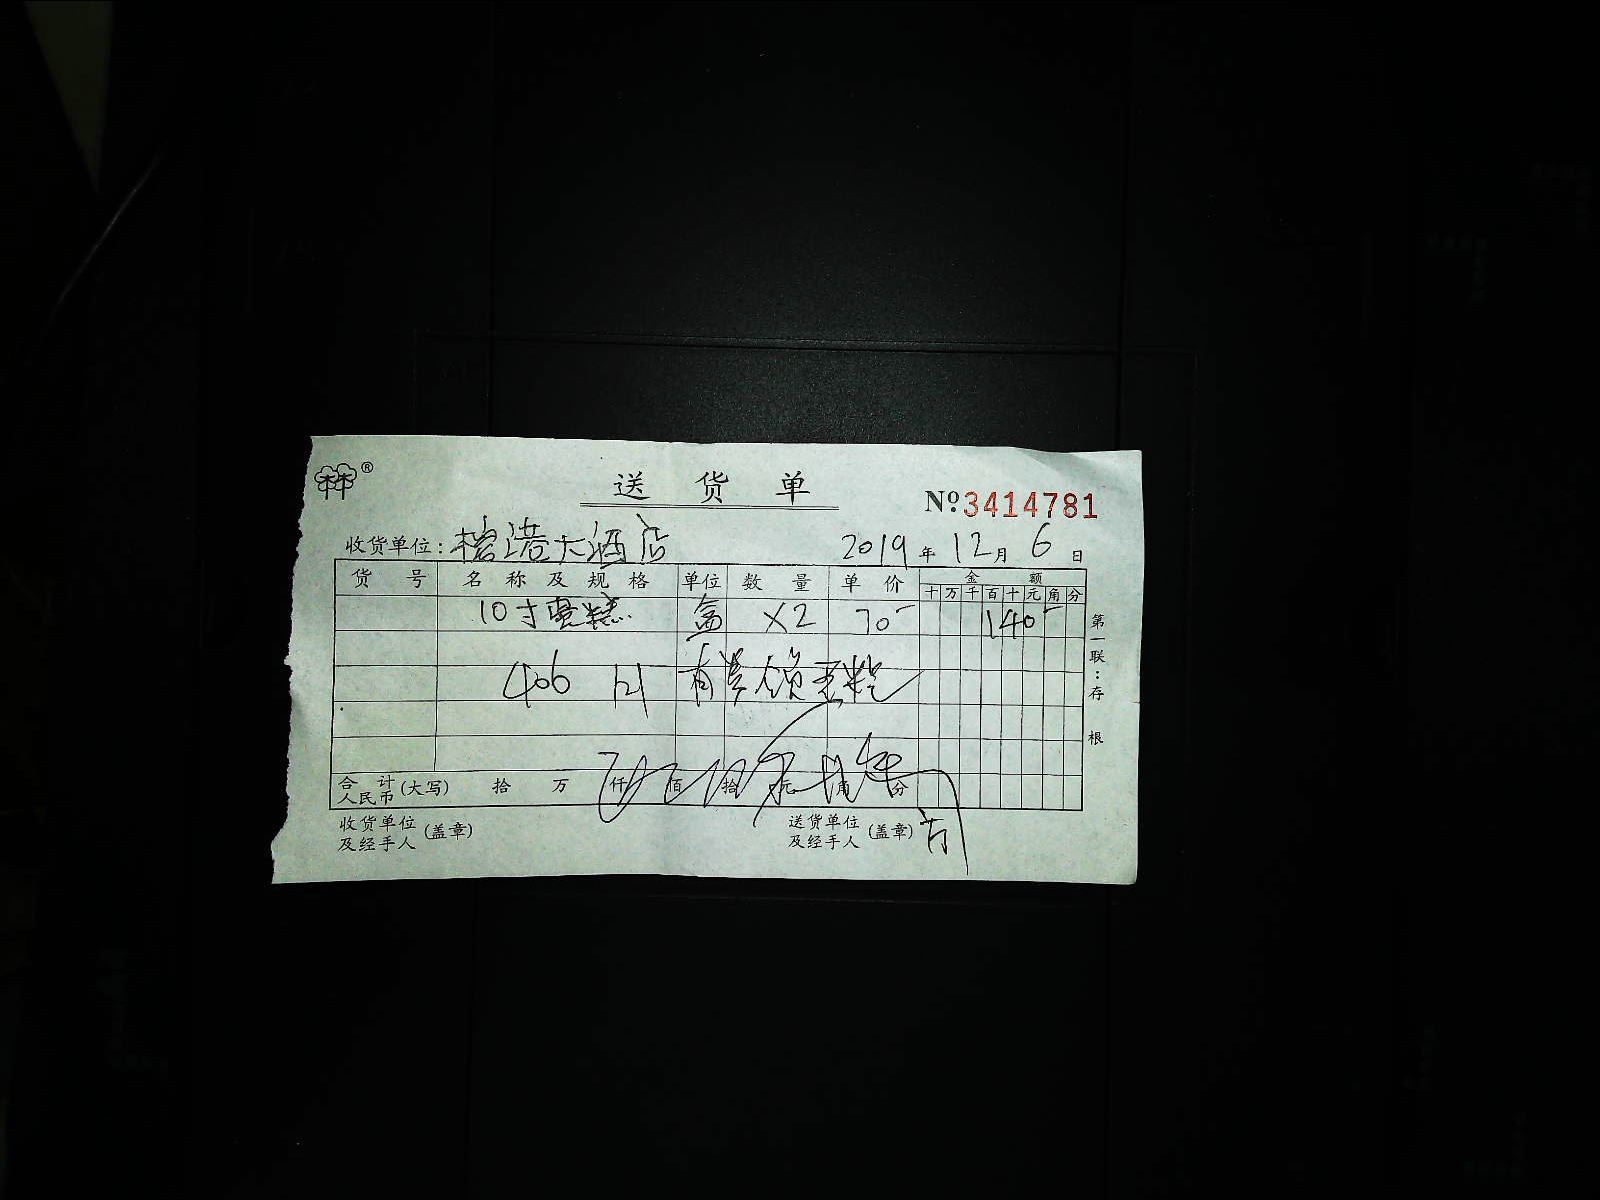 送货单
№:3414781
收货单位:榕港大酒店 2019年12月6日
货号 名称及规格 单位 数量 单价 金额
十万千百十元角分
10寸蛋糕 盒 X2 70- 140-
406
合计人民币(大写) 拾 万 仟 佰 拾 元 角 分
收货单位及经手人(盖章) 送货单位及经手人(盖章)
第一联:存根